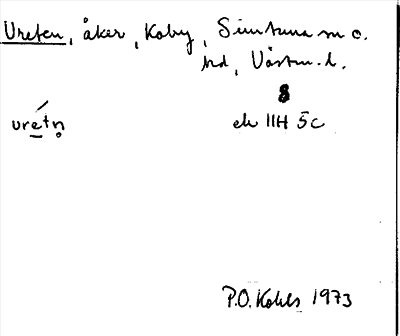 Ureten, åker, Kaby, Simtuna sn o.
hd, Västm. l.
8
uretn ek 11H 5c
P.O. Kohls 1973